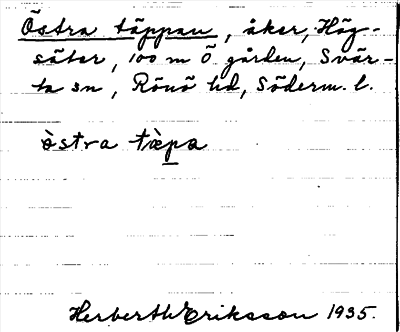 Östra täppan, åker, Hög-
säter, 100 m Ö gården, Svär-
ta sn, Rönö hd, Söderm. l.
östra tæpa
Herberth Eriksson 1935.